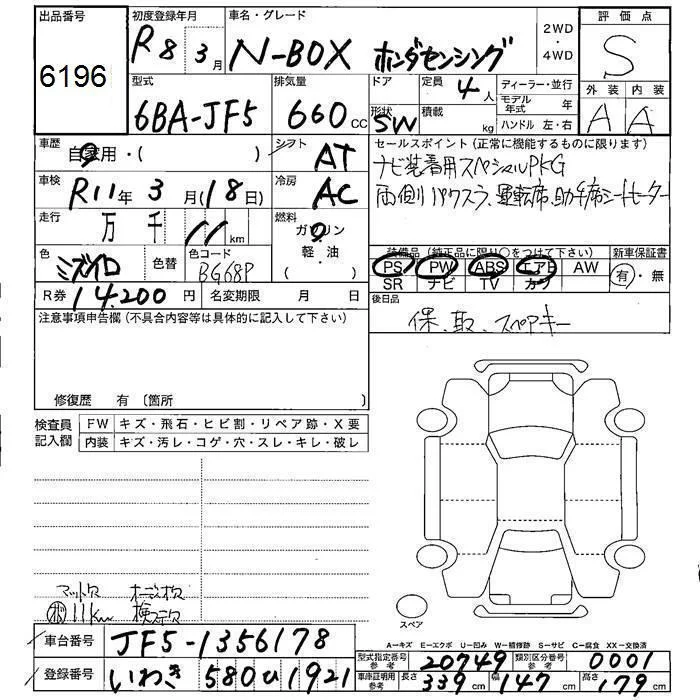 出品番号
6196
初度登録年月
R8年3月
車名・グレード
N-BOX ホンダセンシング
2WD
・
4WD
評価点
S
外装 内装
A A
型式
6BA-JF5
排気量
660cc
ドア
形状
SW
定員
4人
積載
kg
ディーラー・並行
モデル年式 年
ハンドル 左・右
車歴
自家用・( )
シフト
AT
セールスポイント(正常に機能するものに限ります)
ナビ装着用スペシャルPKG
両側パワスラ、運転席、助手席シートヒーター
車検
R11年3月(18日)
冷房
AC
走行
万 千 11km
燃料
ガソリン
軽・油
( )
色
ミズイロ
色替
色コード
BG68P
装備品(純正品に限り○をつけて下さい)
PS PW ABS エアB AW
SR ナビ TV カワ
新車保証書
有・無
R券 14,200円
名変期限 月 日
後日品
保、取、スペアキー
注意事項申告欄(不具合内容等は具体的に記入して下さい)
修復歴 有〔箇所
検査員記入欄
FW キズ・飛石・ヒビ割・リペア跡・X要
内装 キズ・汚レ・コゲ・穴・スレ・キレ・破レ
マット欠
11km
スペア
A=キズ E=エクボ U=凹み W=補修跡 S=サビ C=腐食 XX=交換済
車台番号
JF5-1356178
登録番号
いわき 580 1921
型式指定番号
参考
20749
類別区分番号
参考
0001
車庫証明用
参考
長さ 339cm 幅 147cm 高さ 179cm